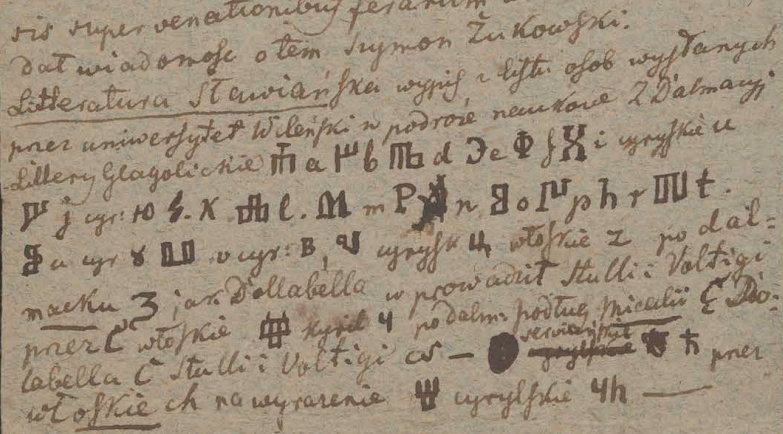 sis super venationibus ferarum
dał wiadomosc o tem Szymon Żukowski.
Litteratura Sławiańska wypis z listu osob wysłanych
przez uniwersytet Wileński w podroże naukowe z Dalmacyi
Littery Glagolickie Ⰰ a b d Э e Ф f i cyryskie и
j cyr: ю K l. m P n o p h r Ⱅ t.
u cyr ȣ v cyr: в, cyrylsk ц włoskie z po dal=
macku З j ak Dellabella wprowadził Stulli i Voltigi
przez C włoskie Kyril ч po dalm: podług Micalii C Do=
labella C Stulli i Voltigi cs — ћ przez
włoskie ch na wyrażenie Ⱋ cyrylskie чh —